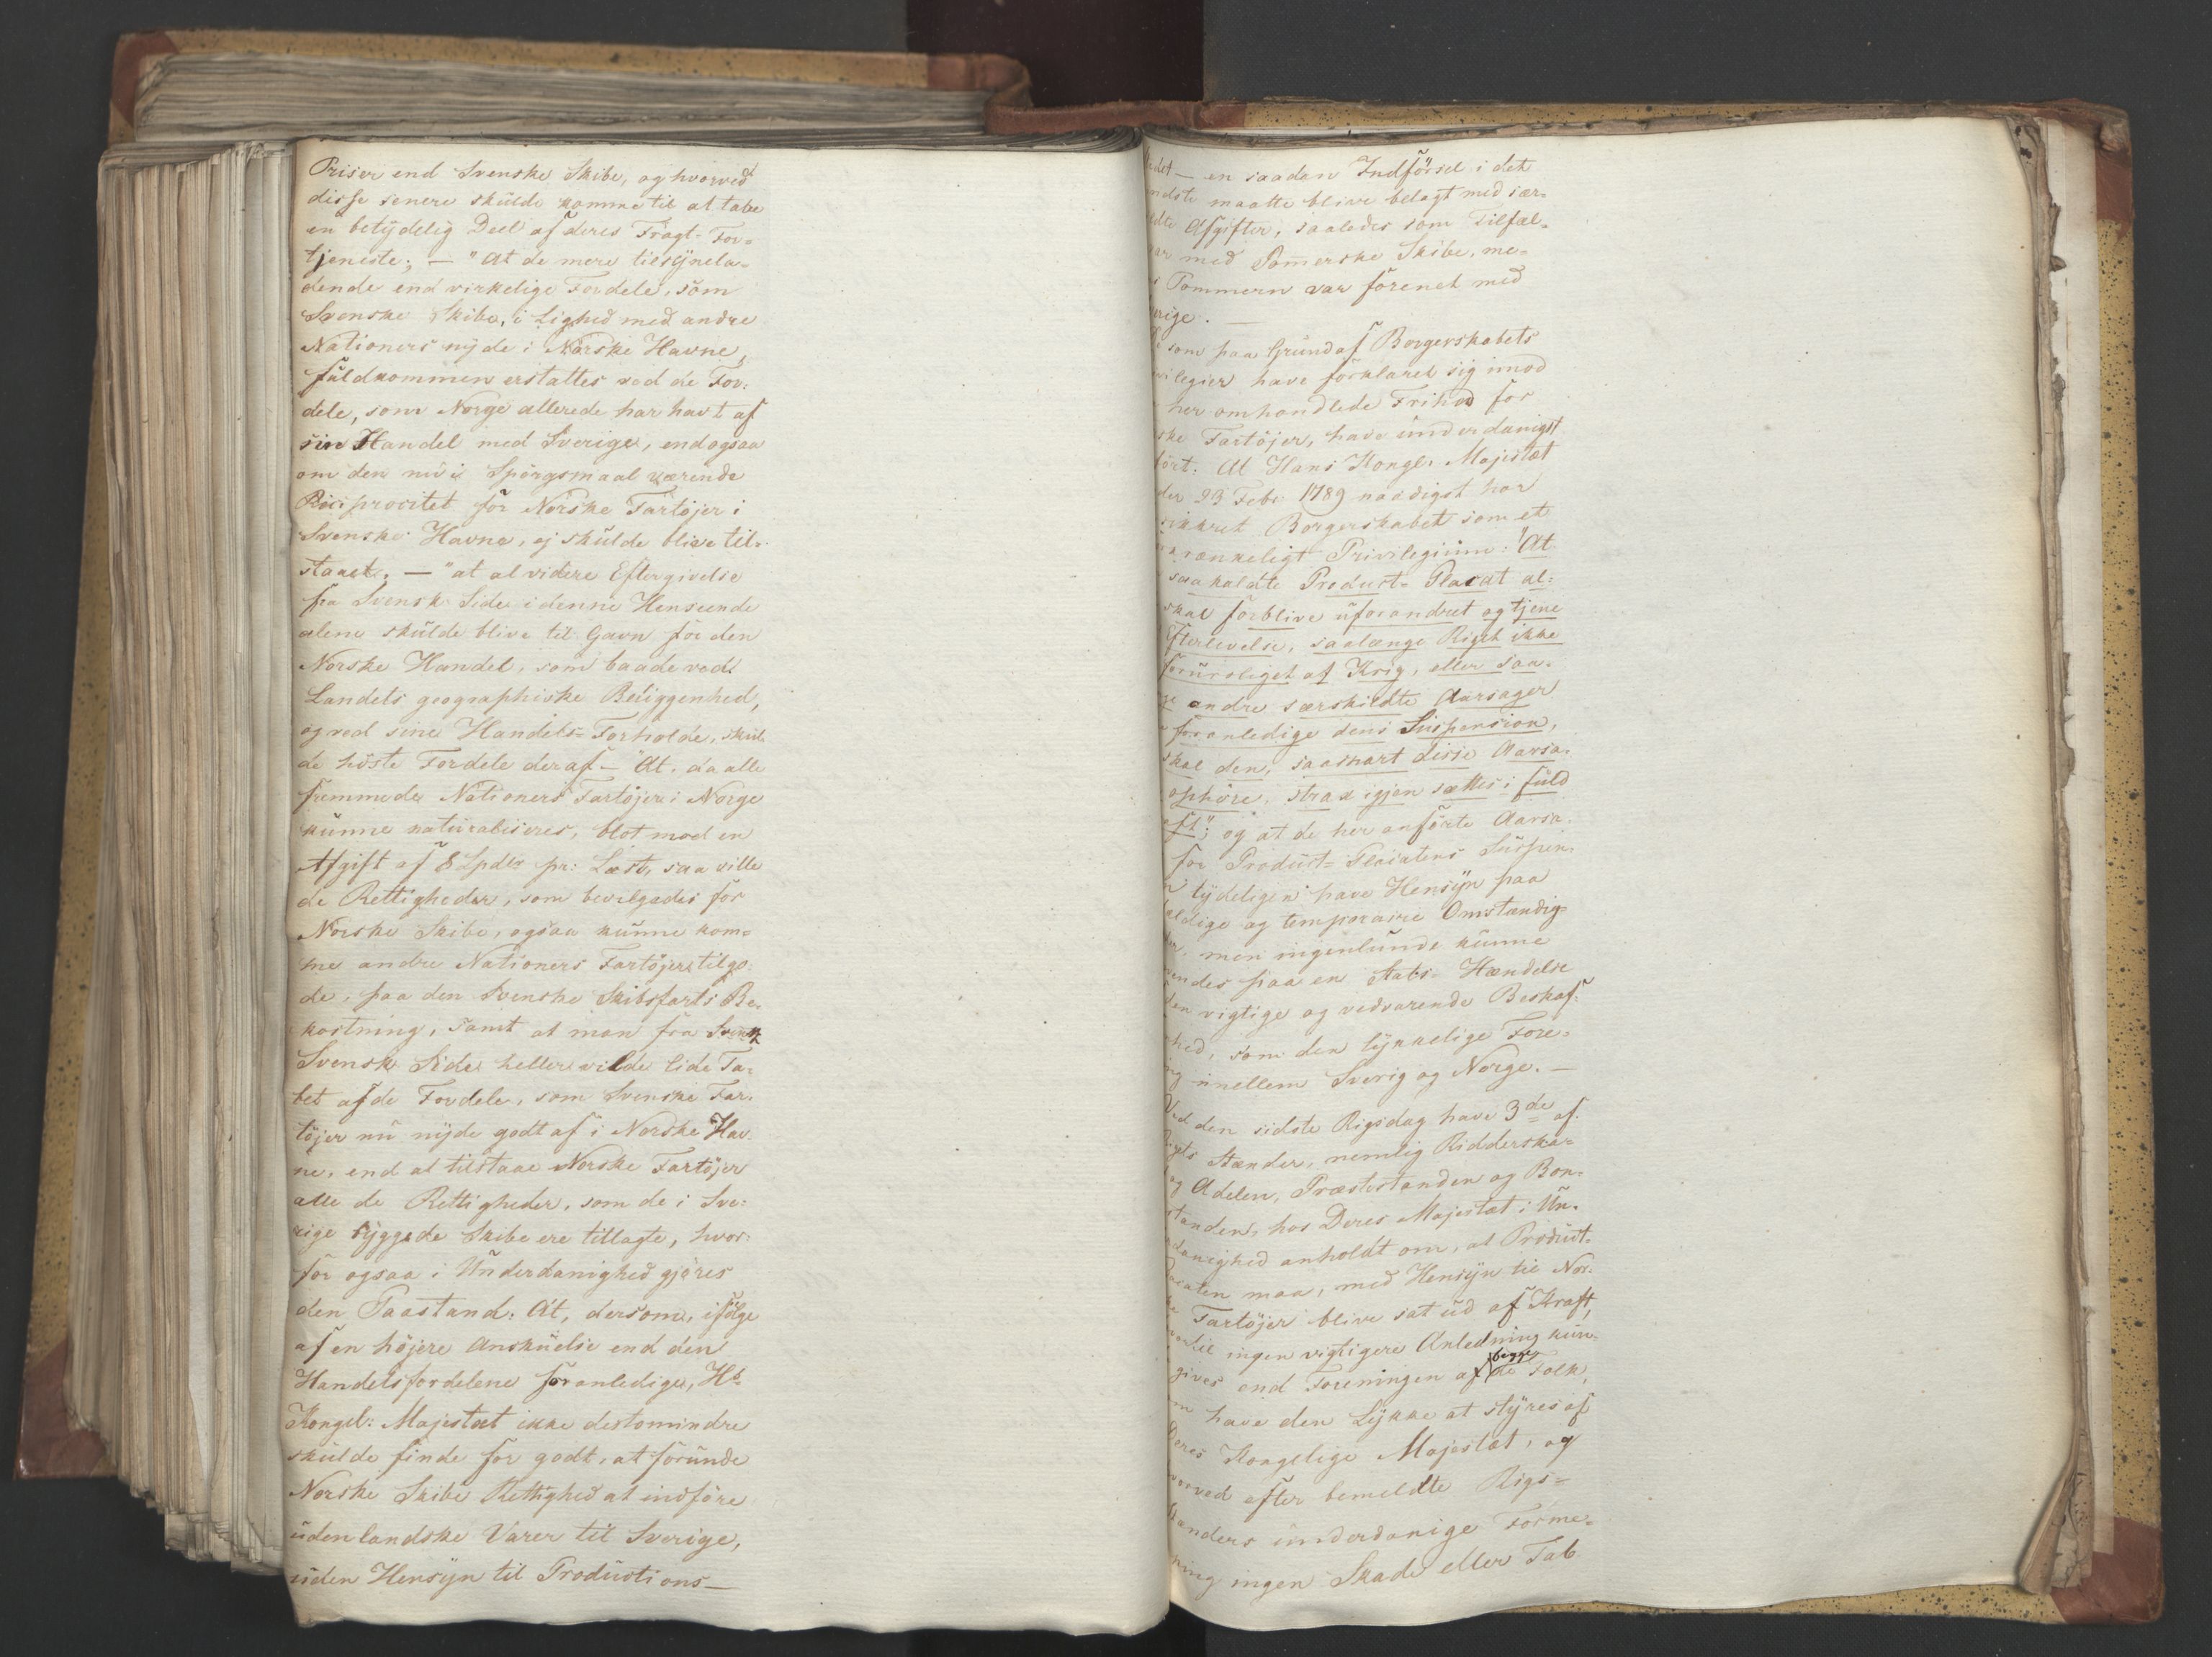 Priser end Svenske Skibe, og hvorved
disse senere skulde komme til at tabe
en betydelig Deel af deres Fragt-For-
tjeneste; — "at de mere tilsynela-
dende end virkelige Fordele, som
Svenske Skibe, i Lighed med andre
Nationers nyde i Norske Havne,
fuldkommen erstattes ved de For-
dele, som Norge allerede har havt af
sin Handel med Sverige, endogsaa
om den nu i Spörgsmaal værende
Reciprocitet for Norske Fartöjer i
Svenske Havne, ej skulde blive til-
staaet. — "at al videre Eftergivelse
fra Svensk Side i denne Henseende
alene skulde blive til Gavn for den
Norske Handel, som baade ved
Landets geographiske Beliggenhed,
og ved sine Handels-Forholde, skul-
de höste Fordele deraf — "At, da alle
fremmede Nationers Fartöjer i Norge
kunne naturaliseres, blot mod en
Afgift af 8 Spdlr pr: Læst, saa ville
de Rettigheder, som bevilgedes for
Norske Skibe, ogsaa kunne kom-
me andre Nationers Fartöjer tilgo-
de, paa den Svenske Skibsfarts Be-
kostning, samt at man fra Svensk
Svensk Side heller vilde lide Ta-
bet af de Fordele, som Svenske Far-
töjer nu nyde godt af i Norske Hav-
ne, end at tilstaae Norske Fartöjer
alle de Rettigheder, som de i Sve-
rige byggede Skibe ere tillagte, hvor-
for ogsaa i Underdanighed gjöres
den Paastand: At, dersom, ifölge
af en höjere Anskuelse end den
Handelsfordelene foranlediger, Hs
Kongel: Majestæt ikke destomindre
skulde finde for godt, at forunde
Norske Skibe Rettighed at indföre
udenlandske Varer til Sverige,
uden Hensyn til Productions-
stedet — en saadan Indförsel i det
mindste maatte blive belagt med sær-
Afgifter, saaledes som Tilfæl-
var med Pommerske Skibe, me-
Pommern var forenet med
som paa Grund af Borgerskabets
have forklaret sig imod
her omhandlede Frihed for
Fartöjer, have underdanigst
At Hans Kongl. Majestæt
23 Febr 1789 naadigst har
Borgerskabet som et
Privilegium: "At
saakaldte Product-Placat al-
skal forblive uforandret og tjene
Efterlevelse, saalænge Riget ikke
foruroliget af Krig, eller saa-
andre særskildte Aarsager
foranledige dens Suspension,
skal den, saasnart disse Aarsa-
ophöre, strax igjen sættes i fuld
og at de her anförte Aarsa-
for Product-Placatens Suspen-
tydeligen have Hensyn paa
og temporaire Omstændig-
men ingenlunde kunne
paa en Stats-Hændelse
vigtige og vedvarende Beskaf-
som den lykkelige Fore-
imellem Sverig og Norge. —
Ved den sidste Rigsdag have 3de af
Stænder, nemlig Ridderska-
og Adelen, Præstestanden og Bon-
hos Deres Majestæt i Un-
anholdt om, at Product-
maa, med Hensyn til Nor-
Fartöjer blive sat ud af Kraft,
ingen vigtigere Anledning kun-
gives end Foreningen af begge de Folk,
have den Lykke at styres af
Deres Kongelige Majestæt, og
efter bemeldte Rigs-
Stænders underdanige Forme-
ning ingen Skade eller Tab